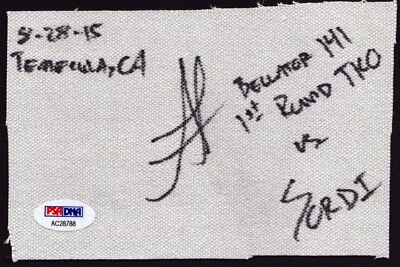 8-28-15
TEMECULA, CA
BELLATOR 141
1st ROUND TKO
vs
SORDI
PSA/DNA
AC28788